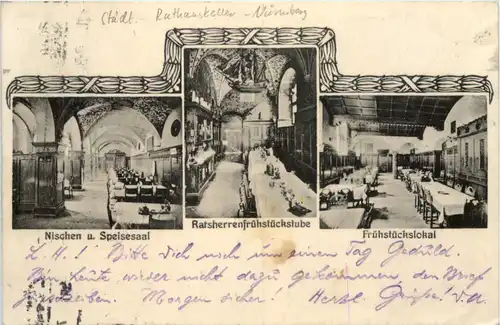 Städt. Rathauskeller - Nürnberg
Nischen u. Speisesaal
Ratsherrenfrühstückstube
Frühstückslokal
L. H.! Bitte Dich noch um einen Tag Geduld.
Bin heute wieder nicht dazu gekommen, den Brief
zu schreiben. Morgen sicher! Herzl. Grüße!